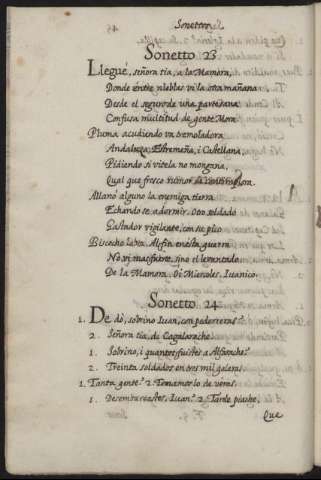 Sonettos.
Sonetto 23
Llegué, señora tía, a la Mamora,
Donde entre nieblas vi la otra mañana,
Desde el seguro de una partesana
Confusa multitud de gente Mora
Pluma acudiendo va tremoladora
Andaluza, Estremeña, i Castellana,
Pidiendo si vitela no mongana,
Qual que fresco rumor de
Allanó alguno la enemiga tierra
Echandose a dormir. Otro soldado
Gastador vigilante, con su pico
Biscocho labra. Al fin en esta guerra
No vi mas fuerte, sino el levantado.
De la Mamora. Oi Miercoles. Iuanico.
Sonetto 24
1. De dó, sobrino Iuan, con pedorreras?
2. Señora tía, de Cagalarache.
1. Sobrino, i quantos fuistes a Alfarache?
2. Treinta soldados en tres mil galeras.
1. Tanta gente? 2. Tomamoslo de veras.
1. Desembarcastes, Iuan? 2. Tarde piache.
Que